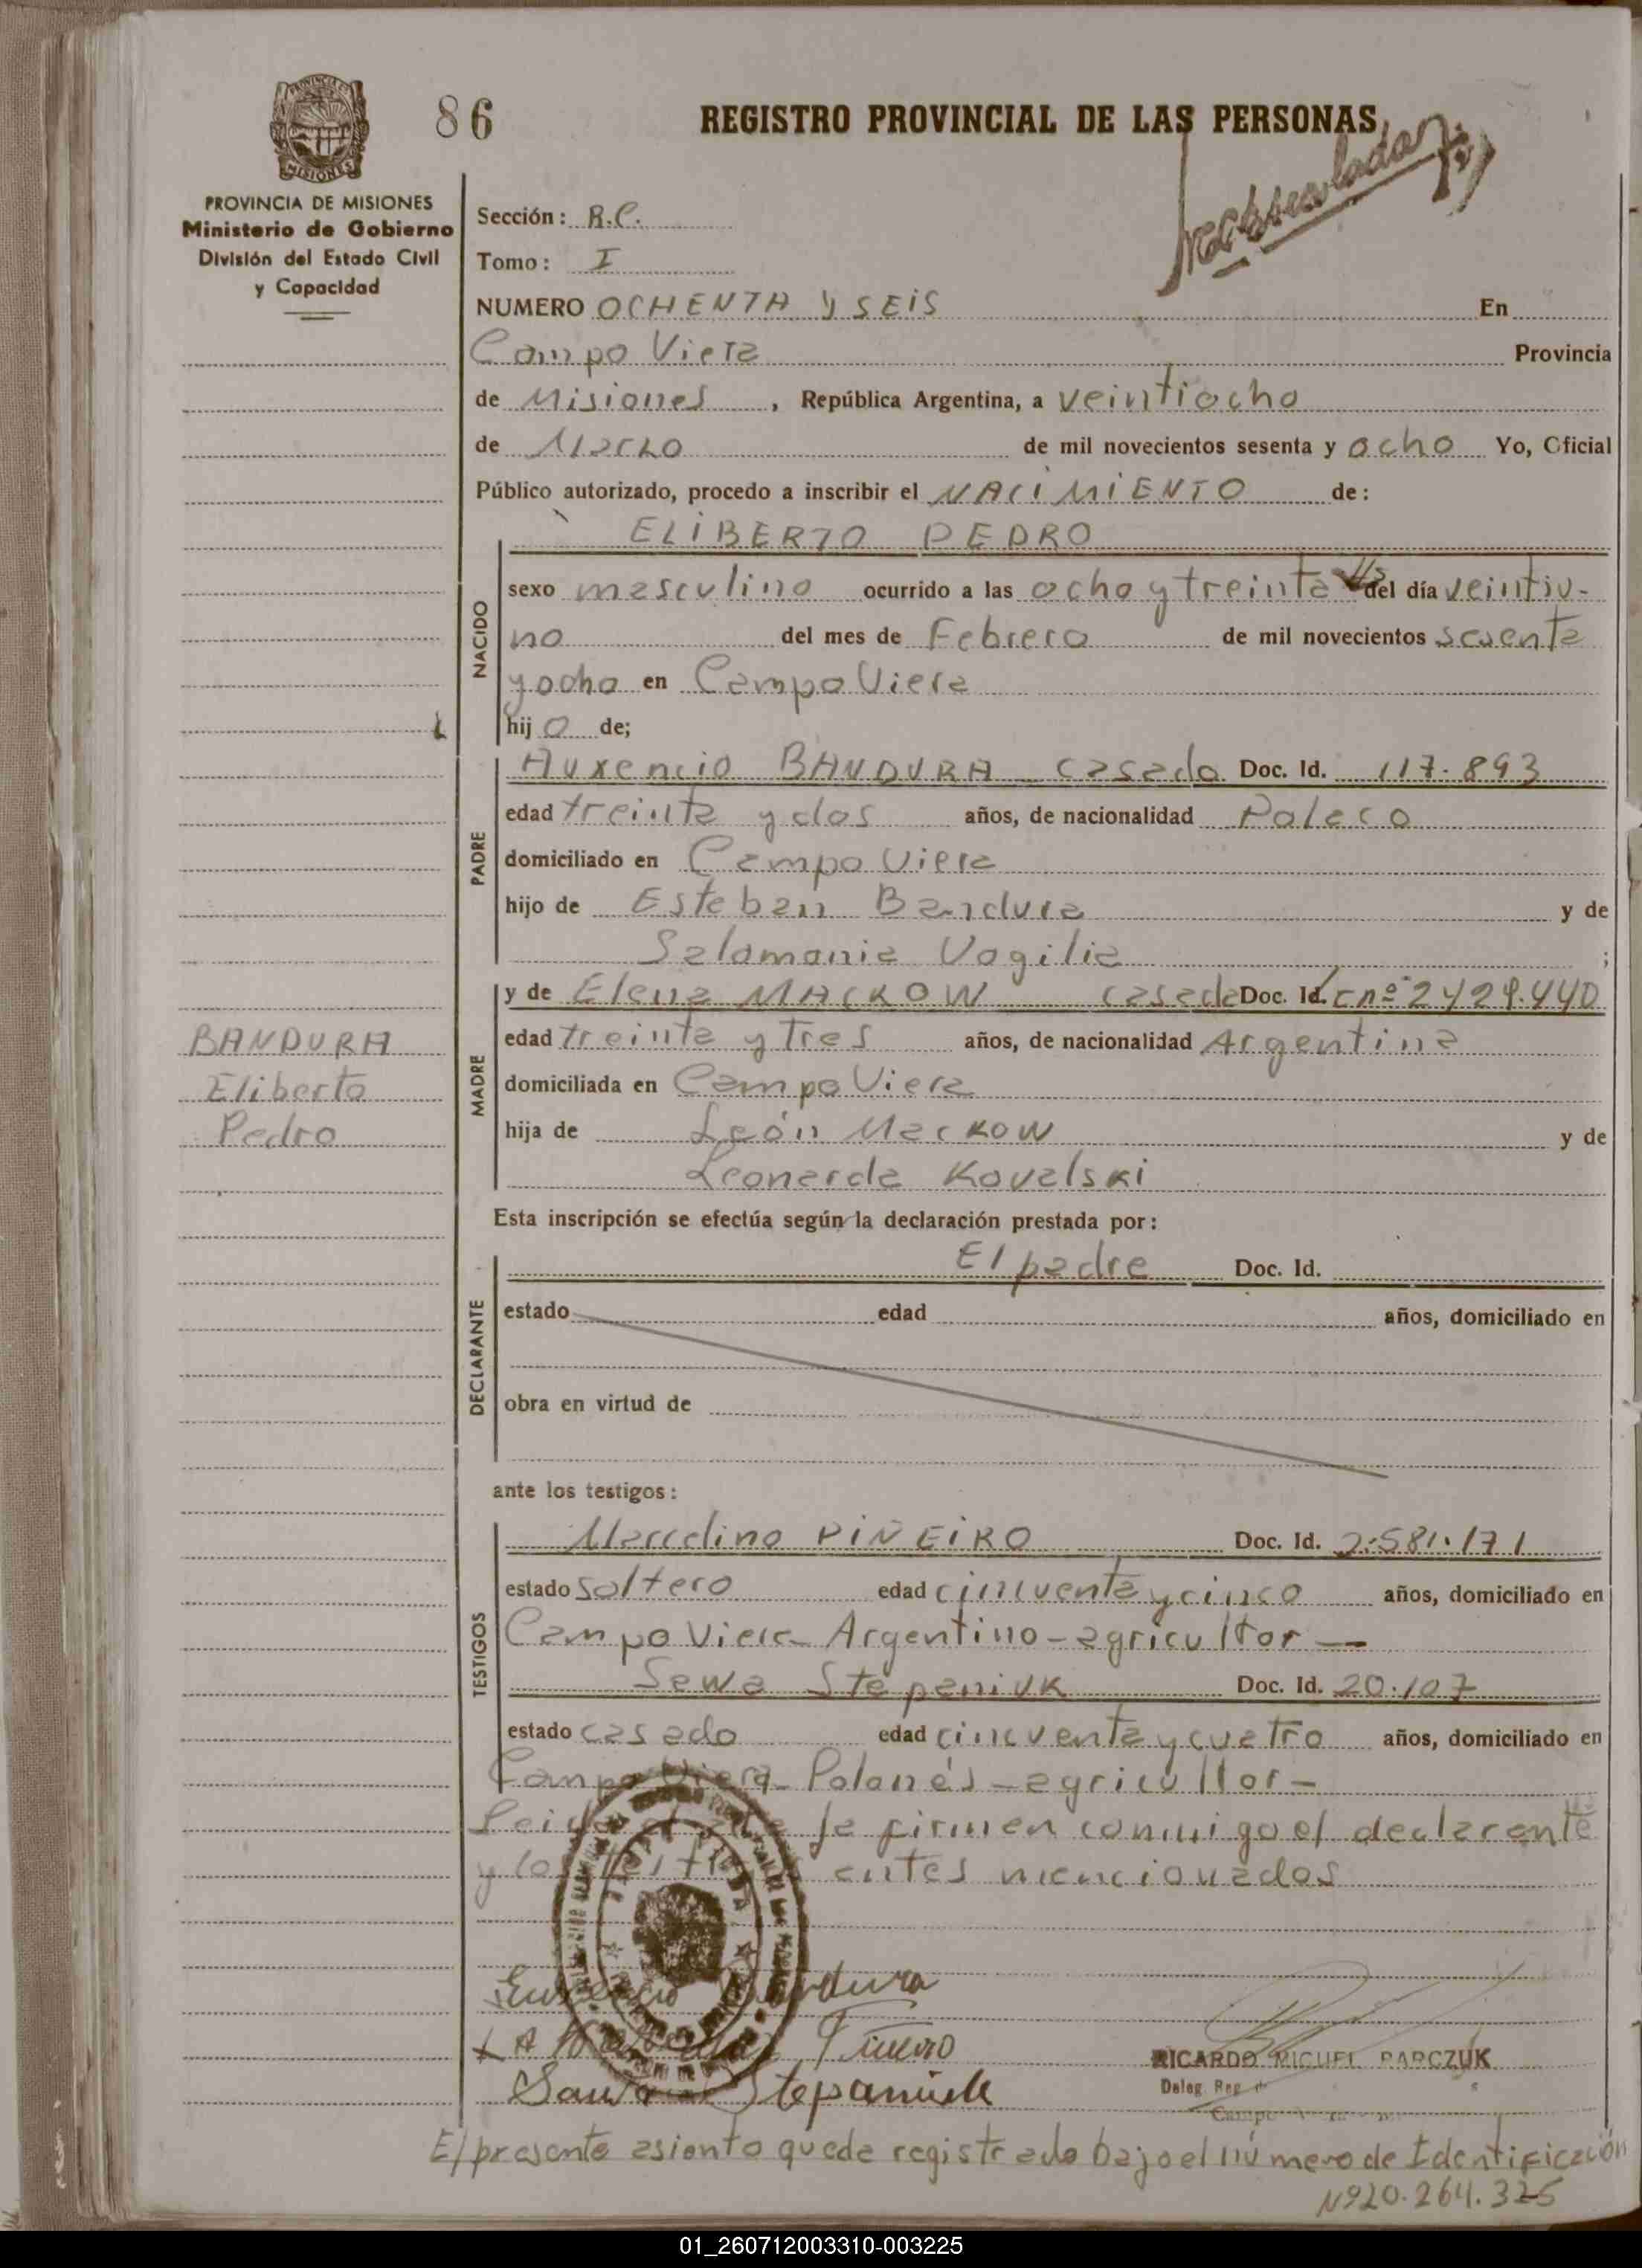 PROVINCIA DE
MISIONES
86
REGISTRO PROVINCIAL DE LAS PERSONAS
PROVINCIA DE MISIONES
Ministerio de Gobierno
División del Estado Civil
y Capacidad
Sección: R.C.
Tomo: I
NUMERO OCHENTA y SEIS En
Campo Viera Provincia
de Misiones, República Argentina, a veintiocho
de Marzo de mil novecientos sesenta y ocho Yo, Oficial
Público autorizado, procedo a inscribir el NACIMIENTO de:
ELIBERTO PEDRO
NACIDO
sexo masculino ocurrido a las ocho y treinta del día veintiu-
no del mes de Febrero de mil novecientos sesenta
y ocho en Campo Viera
hijo de;
PADRE
Auxencio BANDURA casado Doc. Id. 117.893
edad treinta y dos años, de nacionalidad Polaco
domiciliado en Campo Viera
hijo de Esteban Bandura y de
Salamania Vogilia;
MADRE
y de Elena MACKOW casada Doc. Id. cnº 2424.440
edad treinta y tres años, de nacionalidad Argentina
domiciliada en Campo Viera
hija de León Mackow y de
Leonarda Kovalski
BANDURA
Eliberto
Pedro
Esta inscripción se efectúa según la declaración prestada por:
DECLARANTE
El padre Doc. Id.
estado edad años, domiciliado en
obra en virtud de
ante los testigos:
TESTIGOS
Marcelino PIÑEIRO Doc. Id. 2.581.171
estado soltero edad cincuenta y cinco años, domiciliado en
Campo Viera - Argentino - agricultor —
Sewa Stepaniuk Doc. Id. 20.107
estado casado edad cincuenta y cuatro años, domiciliado en
Campo Viera - Polonés - agricultor -
la firman conmigo el declarante
y los antes mencionados
Bandura
Piñeiro
Stepaniuk
RICARDO MIGUEL PARCZUK
Deleg. Reg.
Campo
El presente asiento queda registrado bajo el número de Identificación
Nº 20.264.325
01_260712003310-003225